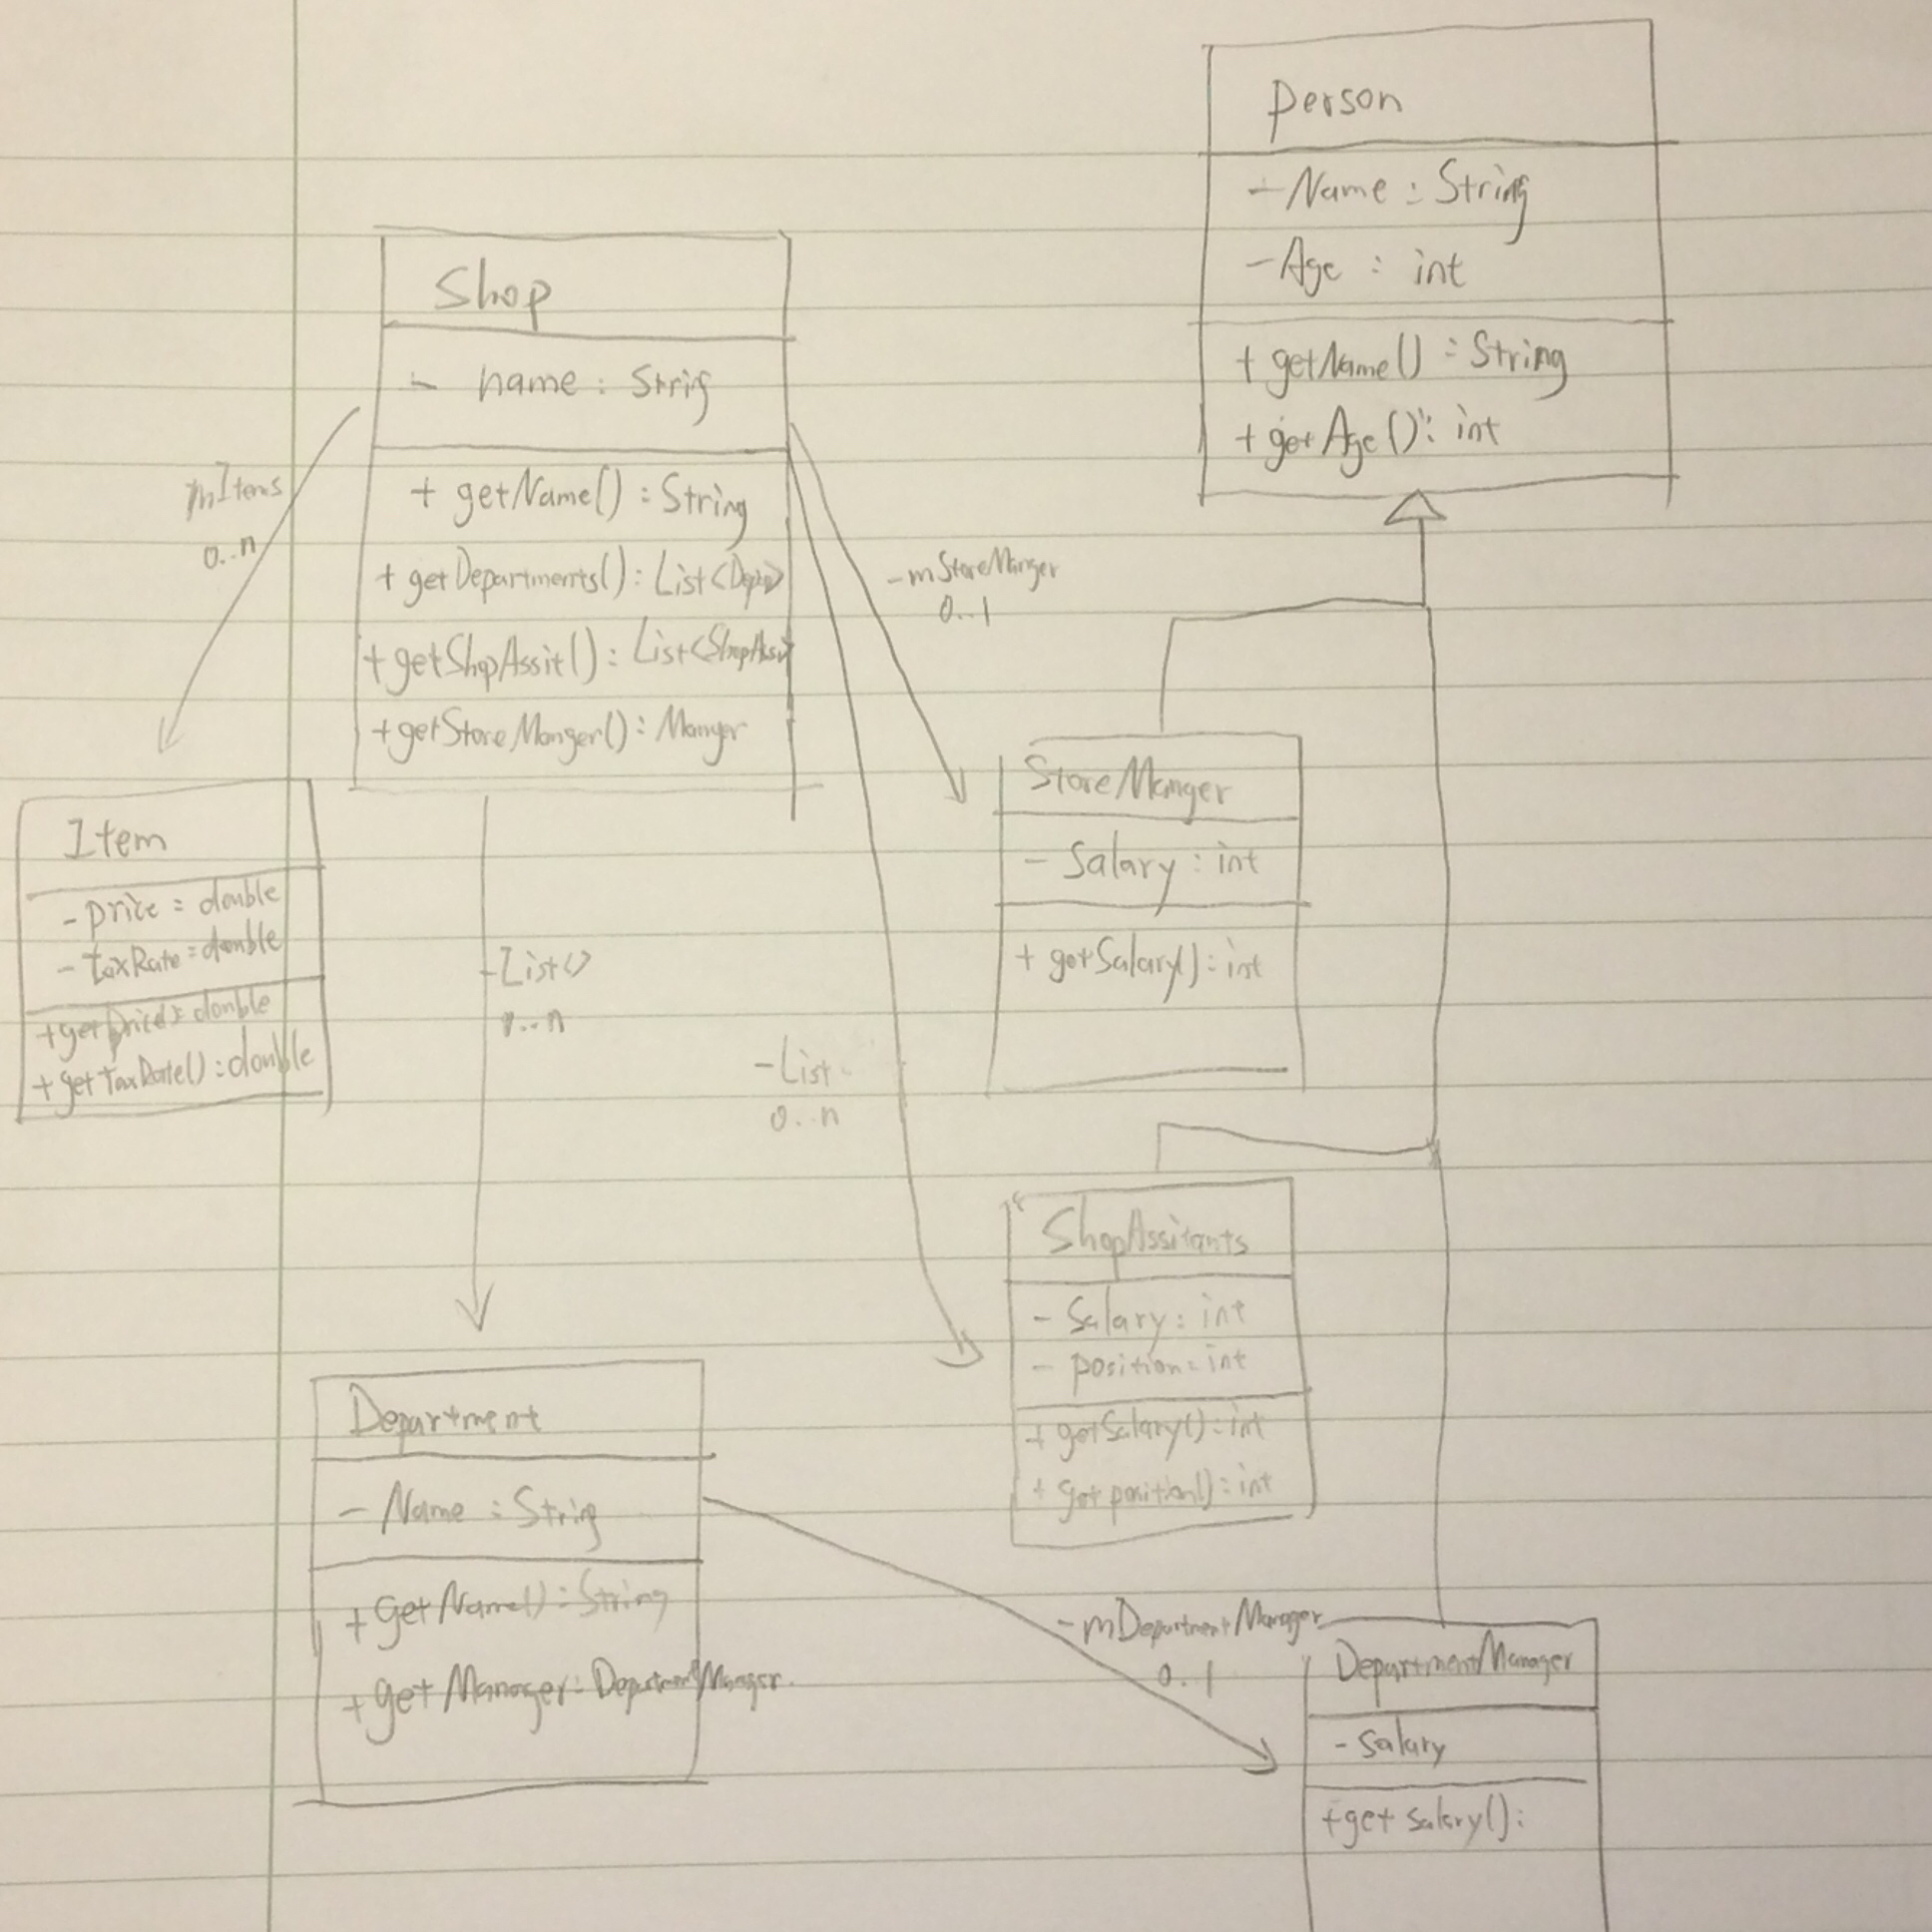 Person
- Name : String
- Age : int
+ getName() : String
+ getAge() : int
Shop
- name : String
+ getName() : String
+ getDepartments() : List<Dept>
+ getShopAssit() : List<ShopAss>
+ getStoreManger() : Manger
mItems
0..n
- mStoreManger
0..1
Item
- price : double
- taxRate : double
+ getprice() : double
+ getTaxRate() : double
StoreManger
- Salary : int
+ getSalary() : int
- List<>
0..n
- List
ShopAssitants
- Salary : int
- position : int
+ getSalary() : int
+ getposition() : int
Department
- Name : String
+ getName() : String
+ getManager : DepartmentManager.
- mDepartmentManager
0..1
DepartmentManager
- salary
+ get salary() :